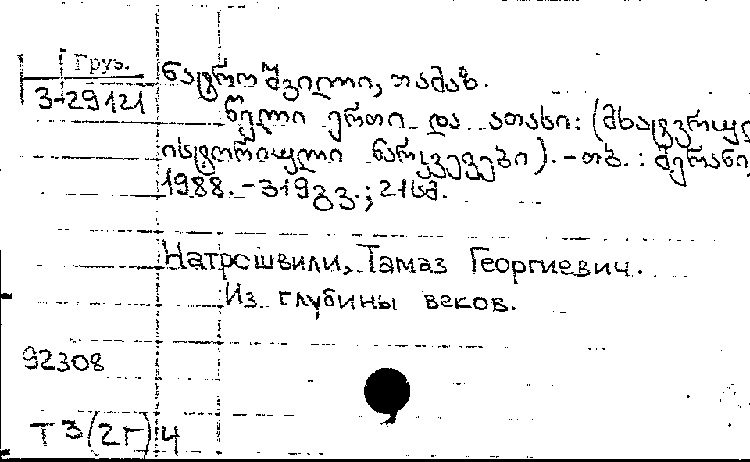 Груз.
3-29121
ნატროშვილი, თამაზ.
წელი ერთი და ათასი: (მხატვრულ
ისტორიული ნარკვევები). - თბ. : მერანი,
1988. - 319გვ. ; 21სმ.
Натрошвили, Тамаз Георгиевич.
Из глубины веков.
92308
Т 3(2Г) 4